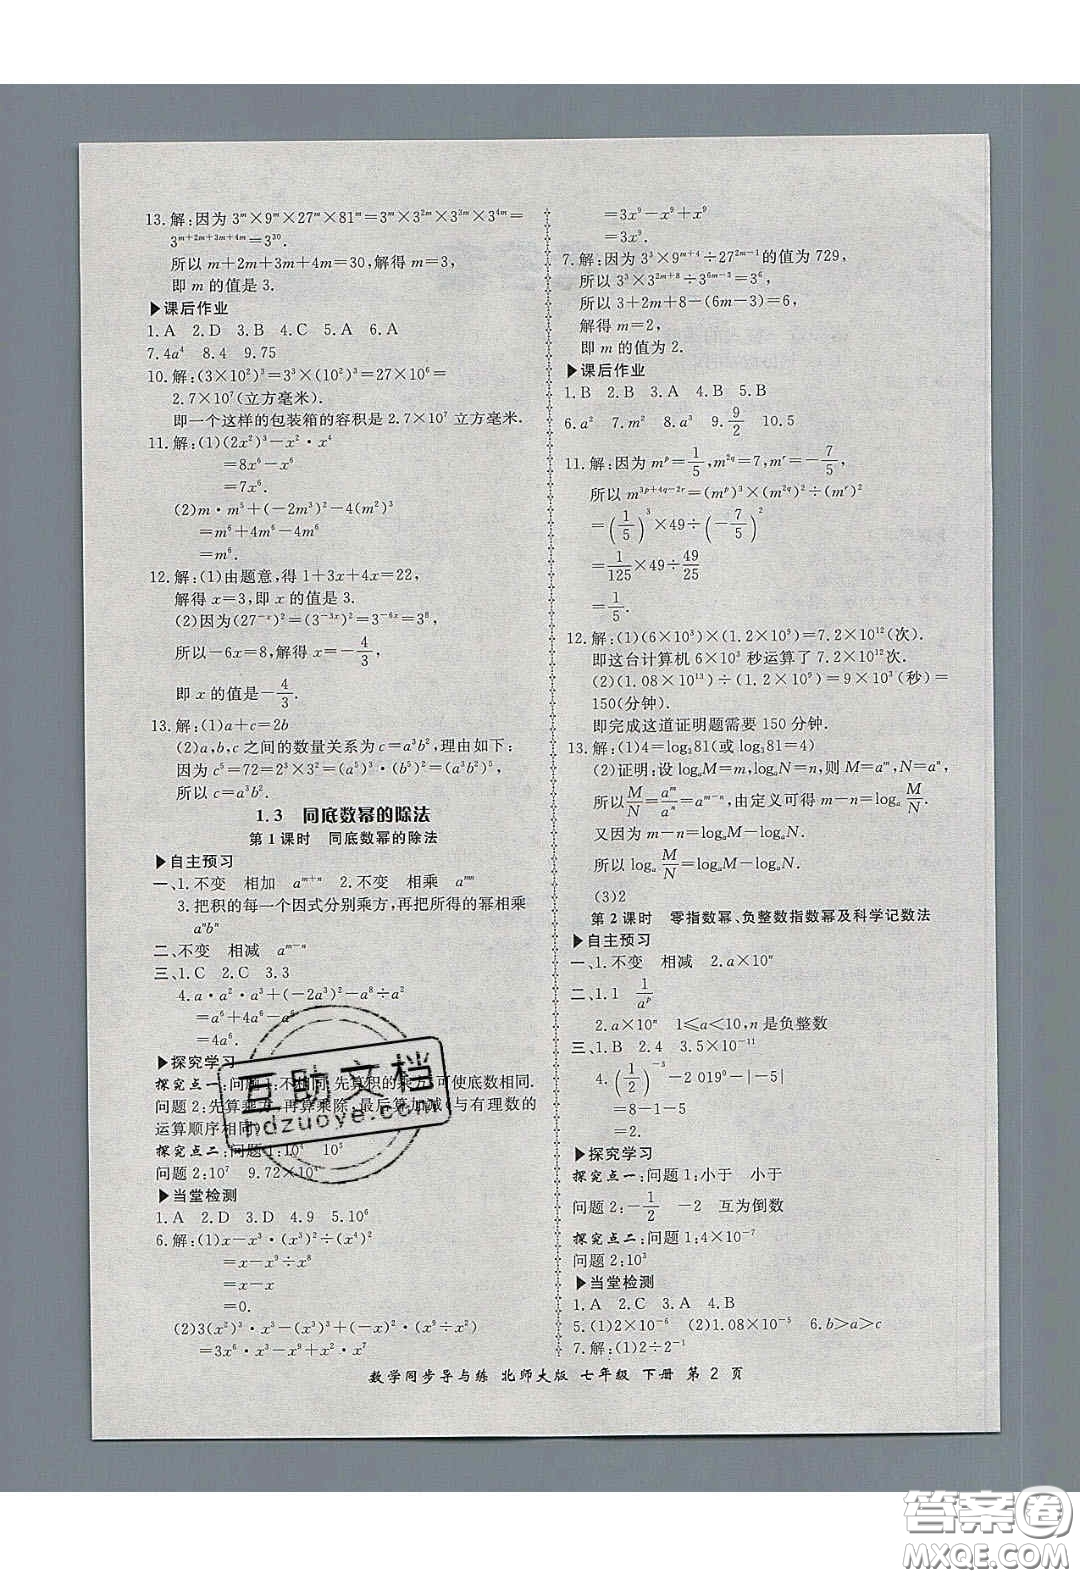 13.解:因为 3^m×9^m×27^m×81^m=3^m×3^{2m}×3^{3m}×3^{4m}=
3^{m+2m+3m+4m}=3^{30}.
所以 m+2m+3m+4m=30,解得 m=3,
即 m 的值是 3.
▶课后作业
1.A 2.D 3.B 4.C 5.A 6.A
7.4a^4 8.4 9.75
10.解:(3×10^2)^3=3^3×(10^2)^3=27×10^6=
2.7×10^7(立方毫米).
即一个这样的包装箱的容积是 2.7×10^7 立方毫米.
11.解:(1)(2x^2)^3-x^2·x^4
=8x^6-x^6
=7x^6.
(2)m·m^5+(-2m^3)^2-4(m^2)^3
=m^6+4m^6-4m^6
=m^6.
12.解:(1)由题意,得 1+3x+4x=22,
解得 x=3,即 x 的值是 3.
(2)因为(27^{-x})^2=(3^{-3x})^2=3^{-6x}=3^8
所以-6x=8,解得 x=-4/3,
即 x 的值是-4/3.
13.解:(1)a+c=2b
(2)a,b,c 之间的数量关系为 c=a^3b^2,理由如下:
因为 c^5=72=2^3×3^2=(a^5)^3·(b^5)^2=(a^3b^2)^5,
所以 c=a^3b^2.
1.3 同底数幂的除法
第 1 课时 同底数幂的除法
▶自主预习
一、1.不变 相加 a^{m+n} 2.不变 相乘 a^{mn}
3.把积的每一个因式分别乘方,再把所得的幂相乘
a^nb^n
二、不变 相减 a^{m-n}
三、1.C 2.C 3.3
4.a·a^2·a^3+(-2a^3)^2-a^8÷a^2
=a^6+4a^6-a^6
=4a^6.
▶探究学习
探究点一:问题 1:不相同;先算积的乘方,可使底数相同.
问题 2:先算乘方,再算乘除,最后算加减(与有理数的
运算顺序相同).
探究点二:问题 1:10^4 10^5
问题 2:10^7 9.72×10^4
▶当堂检测
1.A 2.D 3.D 4.9 5.10^6
6.解:(1)x-x^3·(x^3)^2÷(x^4)^2
=x-x^9÷x^8
=x-x
=0.
(2)3(x^2)^3·x^3-(x^3)^3+(-x)^2·x^9÷x^2
=3x^6·x^3-x^9+x^2·x^7
=3x^9-x^9+x^9
=3x^9.
7.解:因为 3^3×9^{m+4}÷27^{2m-1}的值为 729,
所以 3^3×3^{2m+8}÷3^{6m-3}=3^6,
所以 3+2m+8-(6m-3)=6,
解得 m=2,
即 m 的值为 2.
▶课后作业
1.B 2.B 3.A 4.B 5.B
6.a^2 7.m^2 8.a^3 9.9/2 10.5
11.解:因为 m^p=1/5,m^{2q}=7,m^r=-7/5,
所以 m^{3p+4q-2r}=(m^p)^3×(m^{2q})^2÷(m^r)^2
=(1/5)^3×49÷(-7/5)^2
=1/125×49÷49/25
=1/5.
12.解:(1)(6×10^3)×(1.2×10^9)=7.2×10^{12}(次).
即这台计算机 6×10^3 秒运算了 7.2×10^{12}次.
(2)(1.08×10^{13})÷(1.2×10^9)=9×10^3(秒)=
150(分钟).
即完成这道证明题需要 150 分钟.
13.解:(1)4=log_3 81(或 log_3 81=4)
(2)证明:设 log_a M=m,log_a N=n,则 M=a^m,N=a^n,
所以 M/N=a^m/a^n=a^{m-n},由定义可得 m-n=log_a M/N.
又因为 m-n=log_a M-log_a N.
所以 log_a M/N=log_a M-log_a N.
(3)2
第 2 课时 零指数幂、负整数指数幂及科学记数法
▶自主预习
一、1.不变 相减 2.a×10^n
二、1.1 1/a^p
2.a×10^n 1≤a<10,n 是负整数
三、1.B 2.4 3.5×10^{-11}
4.(1/2)^{-3}-2 019^0-|-5|
=8-1-5
=2.
▶探究学习
探究点一:问题 1:小于 小于
问题 2:-1/2 -2 互为倒数
探究点二:问题 1:4×10^{-7}
问题 2:10^3
▶当堂检测
1.A 2.C 3.A 4.B
5.(1)2×10^{-6} (2)1.08×10^{-5} 6.b>a>c
7.解:(1)2÷2^{-1}
数学同步导与练 北师大版 七年级 下册 第 2 页
互助文档
hdzuoye.com
答案圈
MXQE.COM